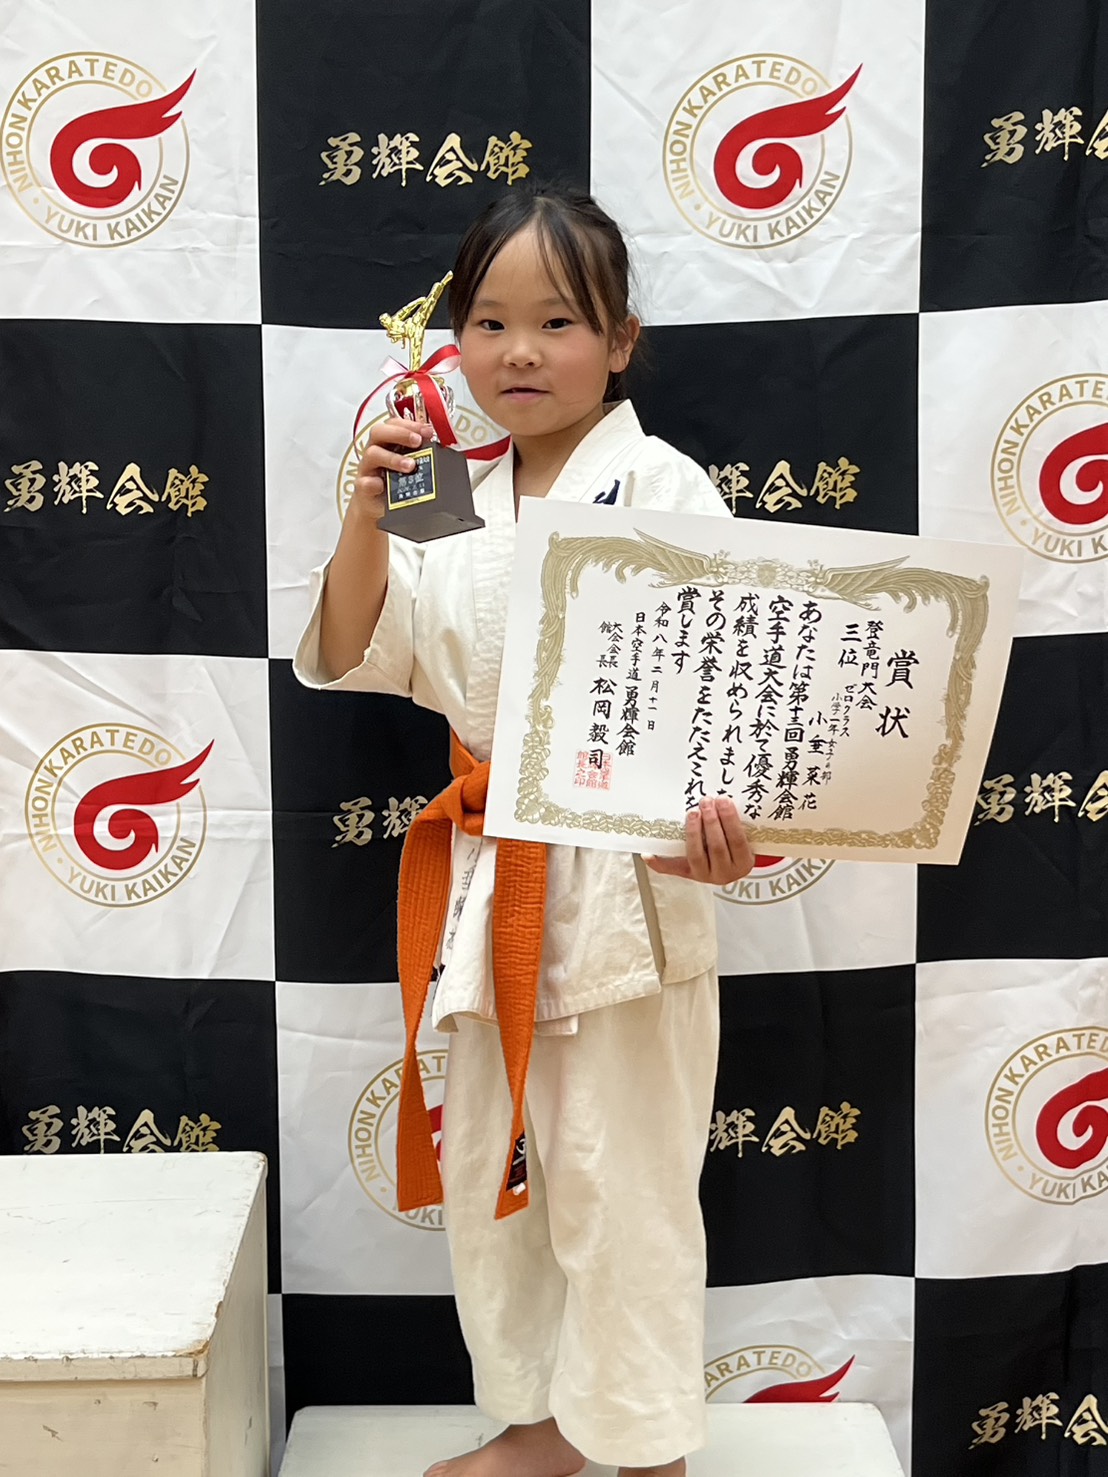 NIHON KARATEDO
YUKI KAIKAN
勇輝会館
NIHON KARATEDO
YUKI KAIKAN
勇輝
勇輝会館
輝会館
NIHON KARATEDO
YUKI KAIKAN
賞状
登竜門大会
三位
ゼロクラス
小学一年女子の部
小垂菜花
あなたは第十三回勇輝会館
空手道大会に於て優秀な
成績を収められました
その栄誉をたたえこれを
賞します
令和八年二月十一日
日本空手道 勇輝会館
大会会長
館長
松岡毅司
第3位
勇輝会館
NIHON KARATEDO
YUKI KAIKAN
勇輝
勇輝会館
YUKI KAIKAN
勇輝会館
NIHON KARA
YUKI
輝会館
NIHON KARATEDO
YUKI KA
KARATEDO
勇輝会